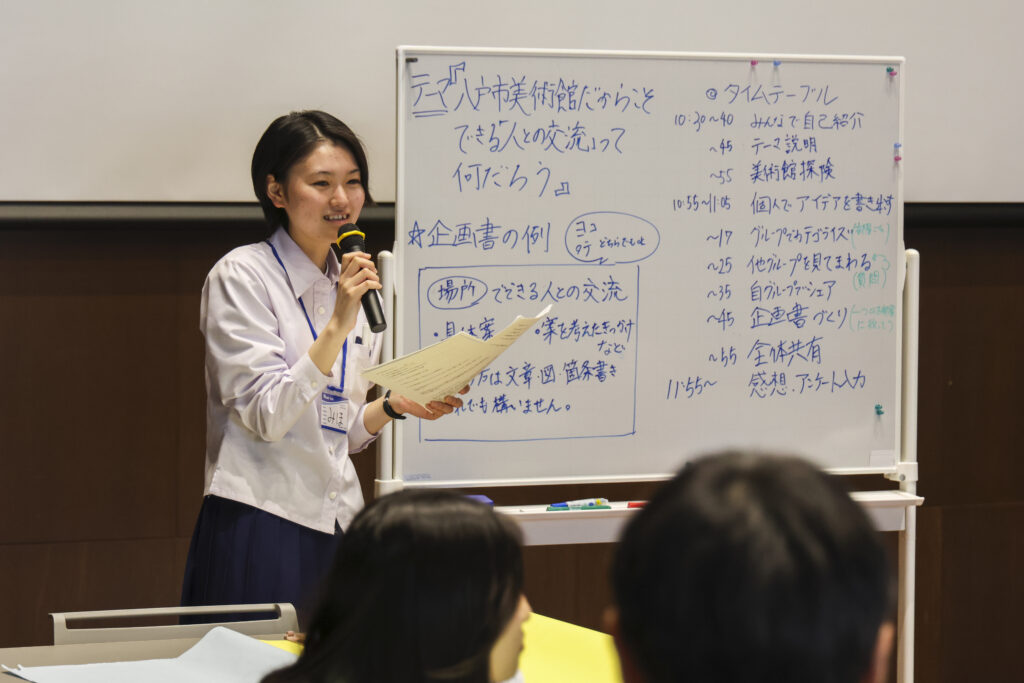 テーマ『八戸市美術館だからこそ
できる「人との交流」って
何だろう』
☆企画書の例
ヨコ
タテ どちらでもOK
場所 でできる人との交流
・具体案 ・案を考えたきっかけ
など
は文章・図・箇条書き
でも構いません。
◎タイムテーブル
10:30〜40 みんなで自己紹介
〜45 テーマ説明
〜55 美術館探険
10:55〜11:05 個人でアイデアを書き出す
〜17 グループでカテゴライズ
〜25 他グループを見てまわる
(質問)
〜35 自グループでシェア
〜45 企画書づくり
〜55 全体共有
11:55〜 感想・アンケート入力
みほ